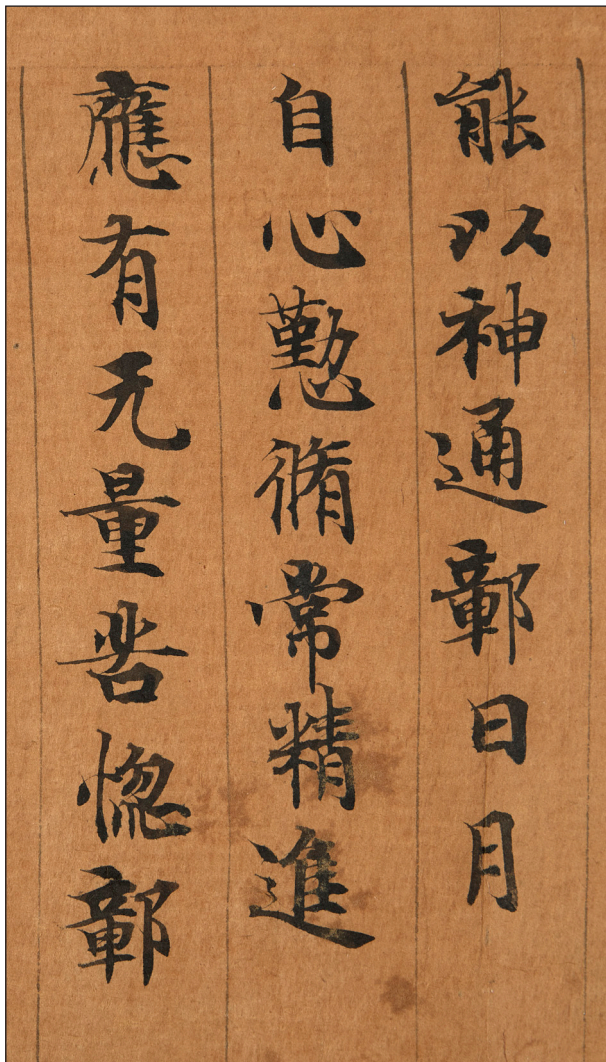 能以神通鄣日月
自心懃脩常精進
應有无量苦惱鄣